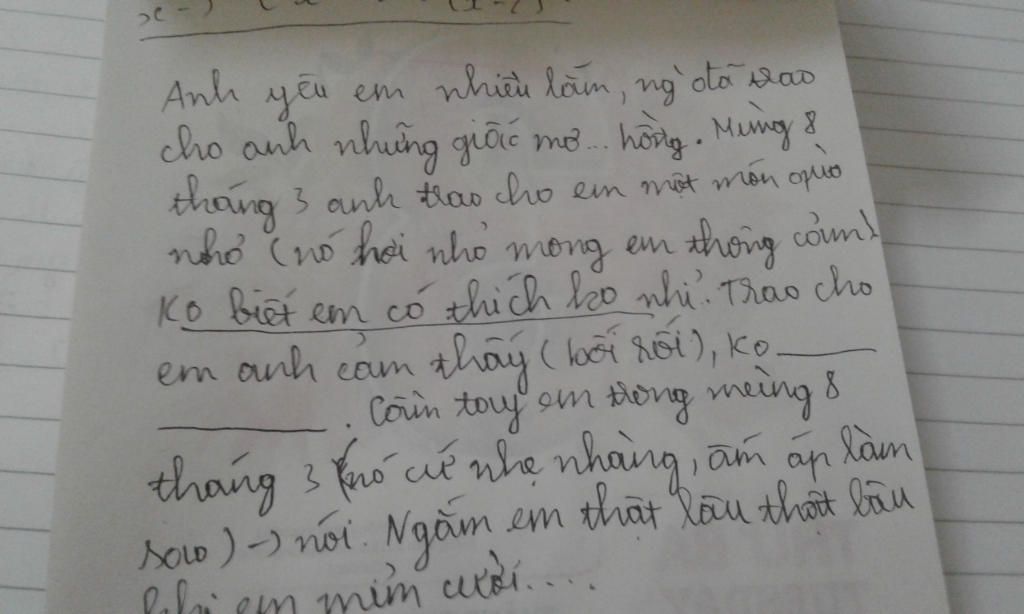 Anh yêu em nhiều lắm, ng` đã trao
cho anh những giấc mơ... hồng. Mừng 8
tháng 3 anh trao cho em một món quà
nhỏ (nó hơi nhỏ mong em thông cảm)
Ko biết em có thích ko nhỉ. Trao cho
em anh cảm thấy (bối rối), ko
. Cầm tay em trong mừng 8
tháng 3 (nó cứ nhẹ nhàng, ấm áp làm
sao) -> nói. Ngắm em thật lâu thật lâu
khi em mỉm cười....